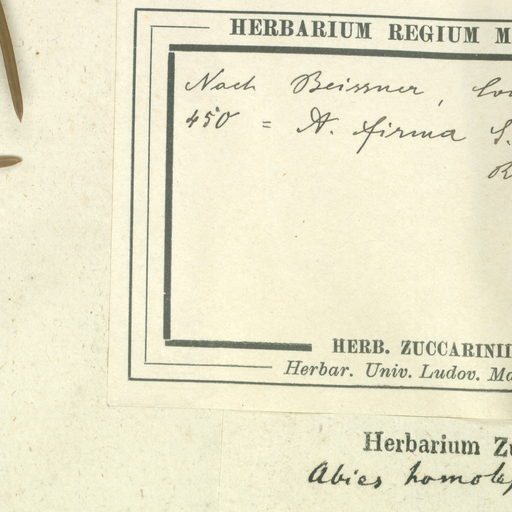 HERBARIUM REGIUM M
Nach Beissner,
450 = A. firma S.
HERB. ZUCCARINII
Herbar. Univ. Ludov. Ma
Herbarium Zu
Abies homolep